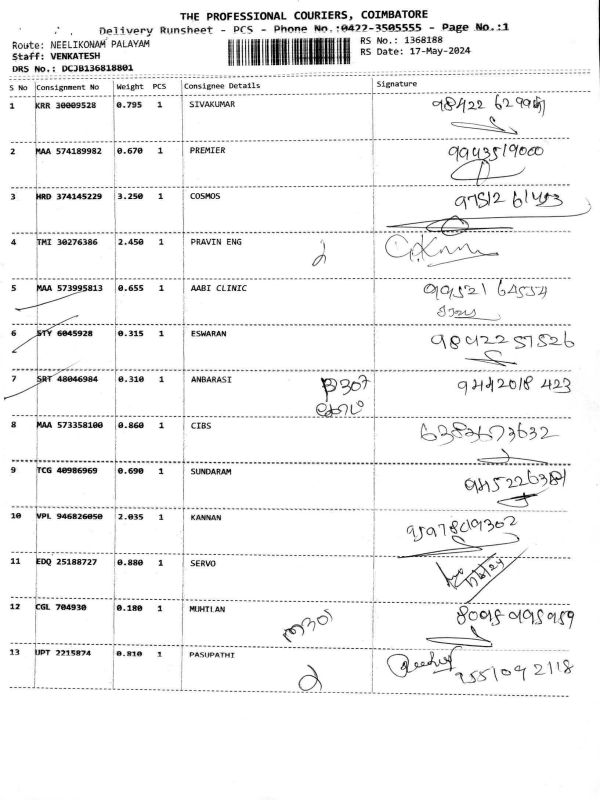 THE PROFESSIONAL COURIERS, COIMBATORE
Delivery Runsheet - PCS - Phone No.:0422-3505555 - Page No.:1
Route: NEELIKONAM PALAYAM
RS No.: 1368188
Staff: VENKATESH
RS Date: 17-May-2024
DRS No.: DCJB136818801
S No Consignment No Weight PCS Consignee Details Signature
1 KRR 30009528 0.795 1 SIVAKUMAR
2 MAA 574189982 0.670 1 PREMIER 9943519000
3 HRD 374145229 3.250 1 COSMOS 97512 61453
4 TMI 30276386 2.450 1 PRAVIN ENG
5 MAA 573995813 0.655 1 AABI CLINIC
6 STY 6045928 0.315 1 ESWARAN 98422 57526
7 SRT 48046984 0.310 1 ANBARASI
8 MAA 573358100 0.860 1 CIBS 6383673632
9 TCG 40986969 0.690 1 SUNDARAM
10 VPL 946826050 2.035 1 KANNAN 9597819302
11 EDQ 25188727 0.880 1 SERVO
12 CGL 704930 0.180 1 MUHILAN 8095 995959
13 UPT 2215874 0.810 1 PASUPATHI 9551092118